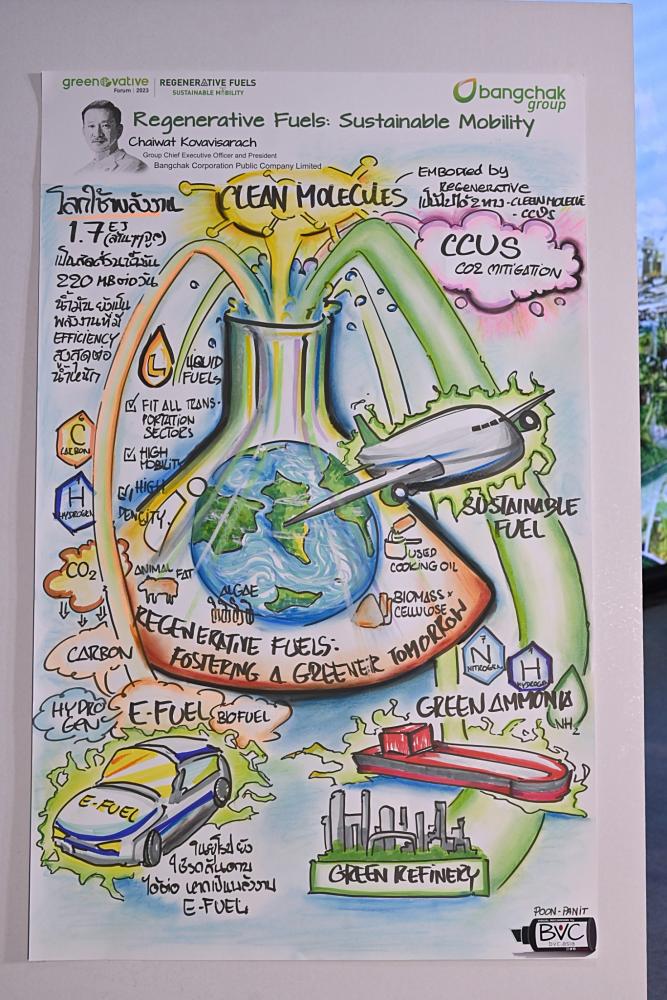 greenovative
Forum | 2023
REGENERATIVE FUELS
SUSTAINABLE MOBILITY
bangchak
group
Regenerative Fuels: Sustainable Mobility
Chaiwat Kovavisarach
Group Chief Executive Officer and President
Bangchak Corporation Public Company Limited
CLEAN MOLECULES
EMBODIED by
REGENERATIVE
เป็นไปได้ 2 ทาง - CLEAN MOLECULE
- CCUS
โลกใช้พลังงาน
1.7 EJ
(ล้านๆๆจูล)
เป็นสัดส่วนน้ำมัน
220 MB ต่อวัน
น้ำมันยังเป็น
พลังงานที่มี
EFFICIENCY
สูงสุดต่อ
น้ำหนัก
CCUS
CO2 MITIGATION
L
LIQUID
FUELS
FIT ALL TRANS-
PORTATION
SECTORS
HIGH
MOBILITY
HIGH
DENCITY
C
CARBON
H
HYDROGEN
CO2
SUSTAINABLE
FUEL
USED
COOKING OIL
ANIMAL FAT
ALGAE
BIOMASS
CELLULOSE
REGENERATIVE FUELS:
FOSTERING A GREENER TOMORROW
CARBON
HYDRO
GEN
E-FUEL
BIOFUEL
7
N
NITROGEN
H
HYDROGEN
GREEN AMMONIA
NH2
E-FUEL
ในยุโรป ยัง
ใช้รถสันดาป
ได้ต่อ หากเป็นพลังงาน
E-FUEL
GREEN REFINERY
POON-PANIT
BVC
bvc.asia